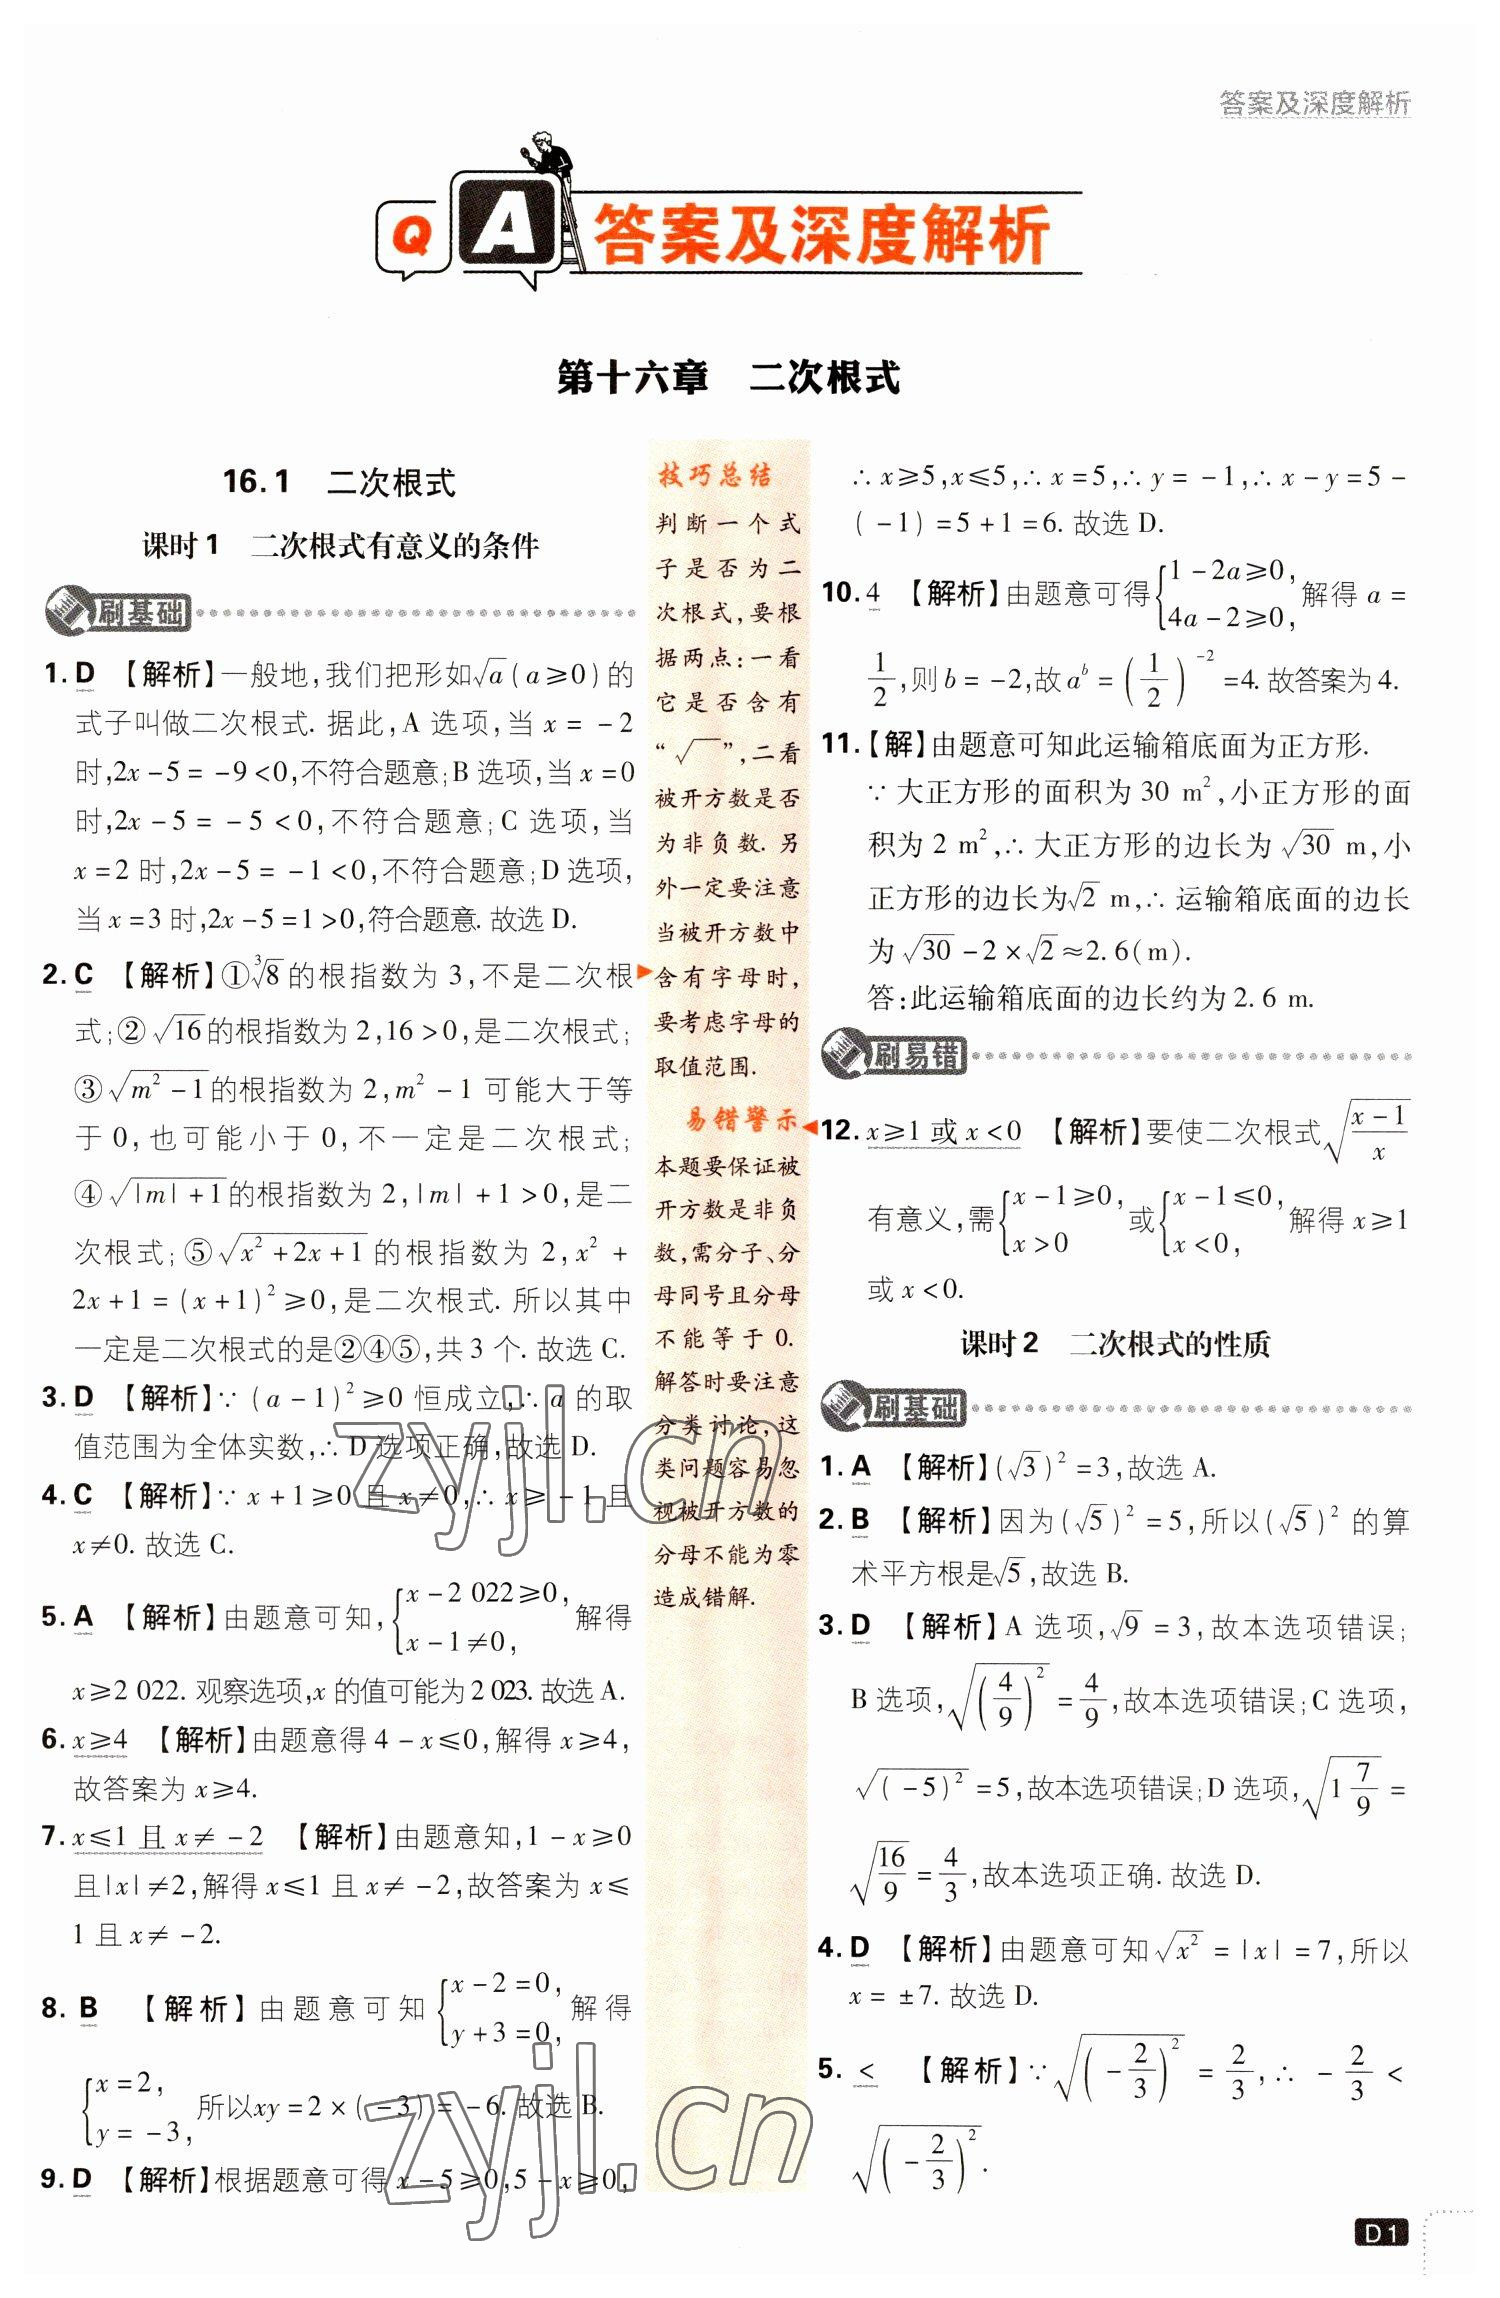 答案及深度解析
Q A 答案及深度解析
第十六章 二次根式
16.1 二次根式
课时1 二次根式有意义的条件
刷基础
1. D 【解析】一般地,我们把形如√a(a≥0)的
式子叫做二次根式. 据此,A 选项,当 x = -2
时,2x-5=-9<0,不符合题意;B 选项,当 x=0
时,2x-5=-5<0,不符合题意;C 选项,当
x=2 时,2x-5=-1<0,不符合题意;D 选项,
当 x=3 时,2x-5=1>0,符合题意. 故选 D.
2. C 【解析】①∛8的根指数为 3,不是二次根
式;②√16的根指数为 2,16>0,是二次根式;
③√(m²-1)的根指数为 2,m²-1 可能大于等
于 0,也可能小于 0,不一定是二次根式;
④√(|m|+1)的根指数为 2,|m|+1>0,是二
次根式;⑤√(x²+2x+1)的根指数为 2,x²+
2x+1=(x+1)²≥0,是二次根式. 所以其中
一定是二次根式的是②④⑤,共 3 个. 故选 C.
3. D 【解析】∵(a-1)²≥0 恒成立,∴a 的取
值范围为全体实数,∴D 选项正确,故选 D.
4. C 【解析】∵x+1≥0 且 x≠0,∴x≥-1 且
x≠0. 故选 C.
5. A 【解析】由题意可知,{x-2 022≥0, x-1≠0, 解得
x≥2 022. 观察选项,x 的值可能为 2 023. 故选 A.
6. x≥4 【解析】由题意得 4-x≤0,解得 x≥4,
故答案为 x≥4.
7. x≤1 且 x≠-2 【解析】由题意知,1-x≥0
且|x|≠2,解得 x≤1 且 x≠-2,故答案为 x≤
1 且 x≠-2.
8. B 【解析】由题意可知{x-2=0, y+3=0, 解得
{x=2, y=-3, 所以xy=2×(-3)=-6. 故选 B.
9. D 【解析】根据题意可得 x-5≥0,5-x≥0,
技巧总结
判断一个式
子是否为二
次根式,要根
据两点:一看
它是否含有
“√ ”,二看
被开方数是否
为非负数. 另
外一定要注意
当被开方数中
含有字母时,
要考虑字母的
取值范围.
易错警示
本题要保证被
开方数是非负
数,需分子、分
母同号且分母
不能等于 0.
解答时要注意
分类讨论,这
类问题容易忽
视被开方数的
分母不能为零
造成错解.
∴x≥5,x≤5,∴x=5,∴y=-1,∴x-y=5-
(-1)=5+1=6. 故选 D.
10. 4 【解析】由题意可得{1-2a≥0, 4a-2≥0, 解得 a=
1/2,则 b=-2,故 aᵇ=(1/2)⁻²=4. 故答案为 4.
11.【解】由题意可知此运输箱底面为正方形.
∵大正方形的面积为 30 m²,小正方形的面
积为 2 m²,∴大正方形的边长为√30 m,小
正方形的边长为√2 m,∴运输箱底面的边长
为√30-2×√2≈2.6(m).
答:此运输箱底面的边长约为 2.6 m.
刷易错
12. x≥1 或 x<0 【解析】要使二次根式√((x-1)/x)
有意义,需{x-1≥0, x>0 或{x-1≤0, x<0, 解得 x≥1
或 x<0.
课时2 二次根式的性质
刷基础
1. A 【解析】(√3)²=3,故选 A.
2. B 【解析】因为(√5)²=5,所以(√5)²的算
术平方根是√5,故选 B.
3. D 【解析】A 选项,√9=3,故本选项错误;
B 选项,√((4/9)²)=4/9,故本选项错误;C 选项,
√((-5)²)=5,故本选项错误;D 选项,√(1 7/9)=
√(16/9)=4/3,故本选项正确. 故选 D.
4. D 【解析】由题意可知√(x²)=|x|=7,所以
x=±7. 故选 D.
5. < 【解析】∵√((-2/3)²)=2/3,∴-2/3<
√((-2/3)²).
zyjl.cn
zyjl.cn
D1